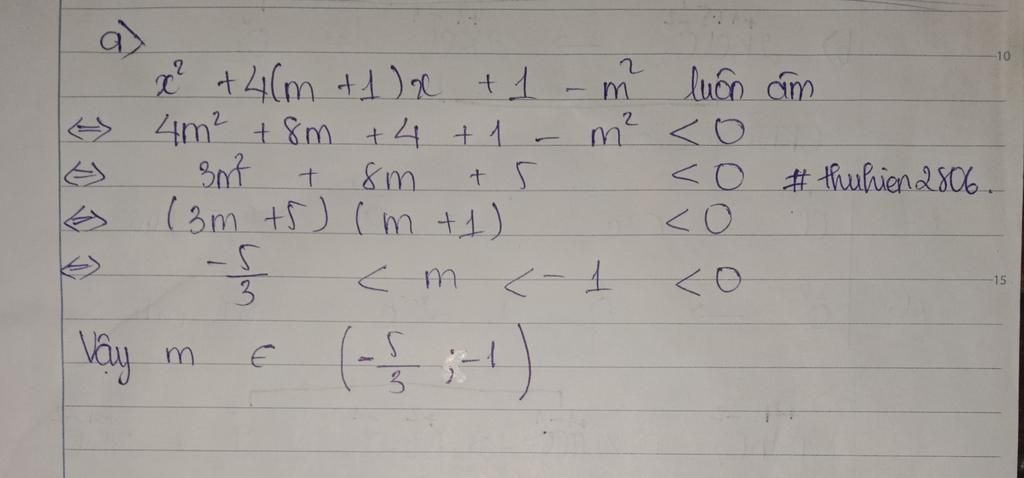 a)
x² + 4(m + 1)x + 1 - m² luôn âm
⇔ 4m² + 8m + 4 + 1 - m² < 0
⇔ 3m² + 8m + 5 < 0 # thuhien2806.
⇔ (3m + 5) (m + 1) < 0
⇔ -5/3 < m < -1 < 0
Vậy m ∈ (-5/3 ; -1)
10
15